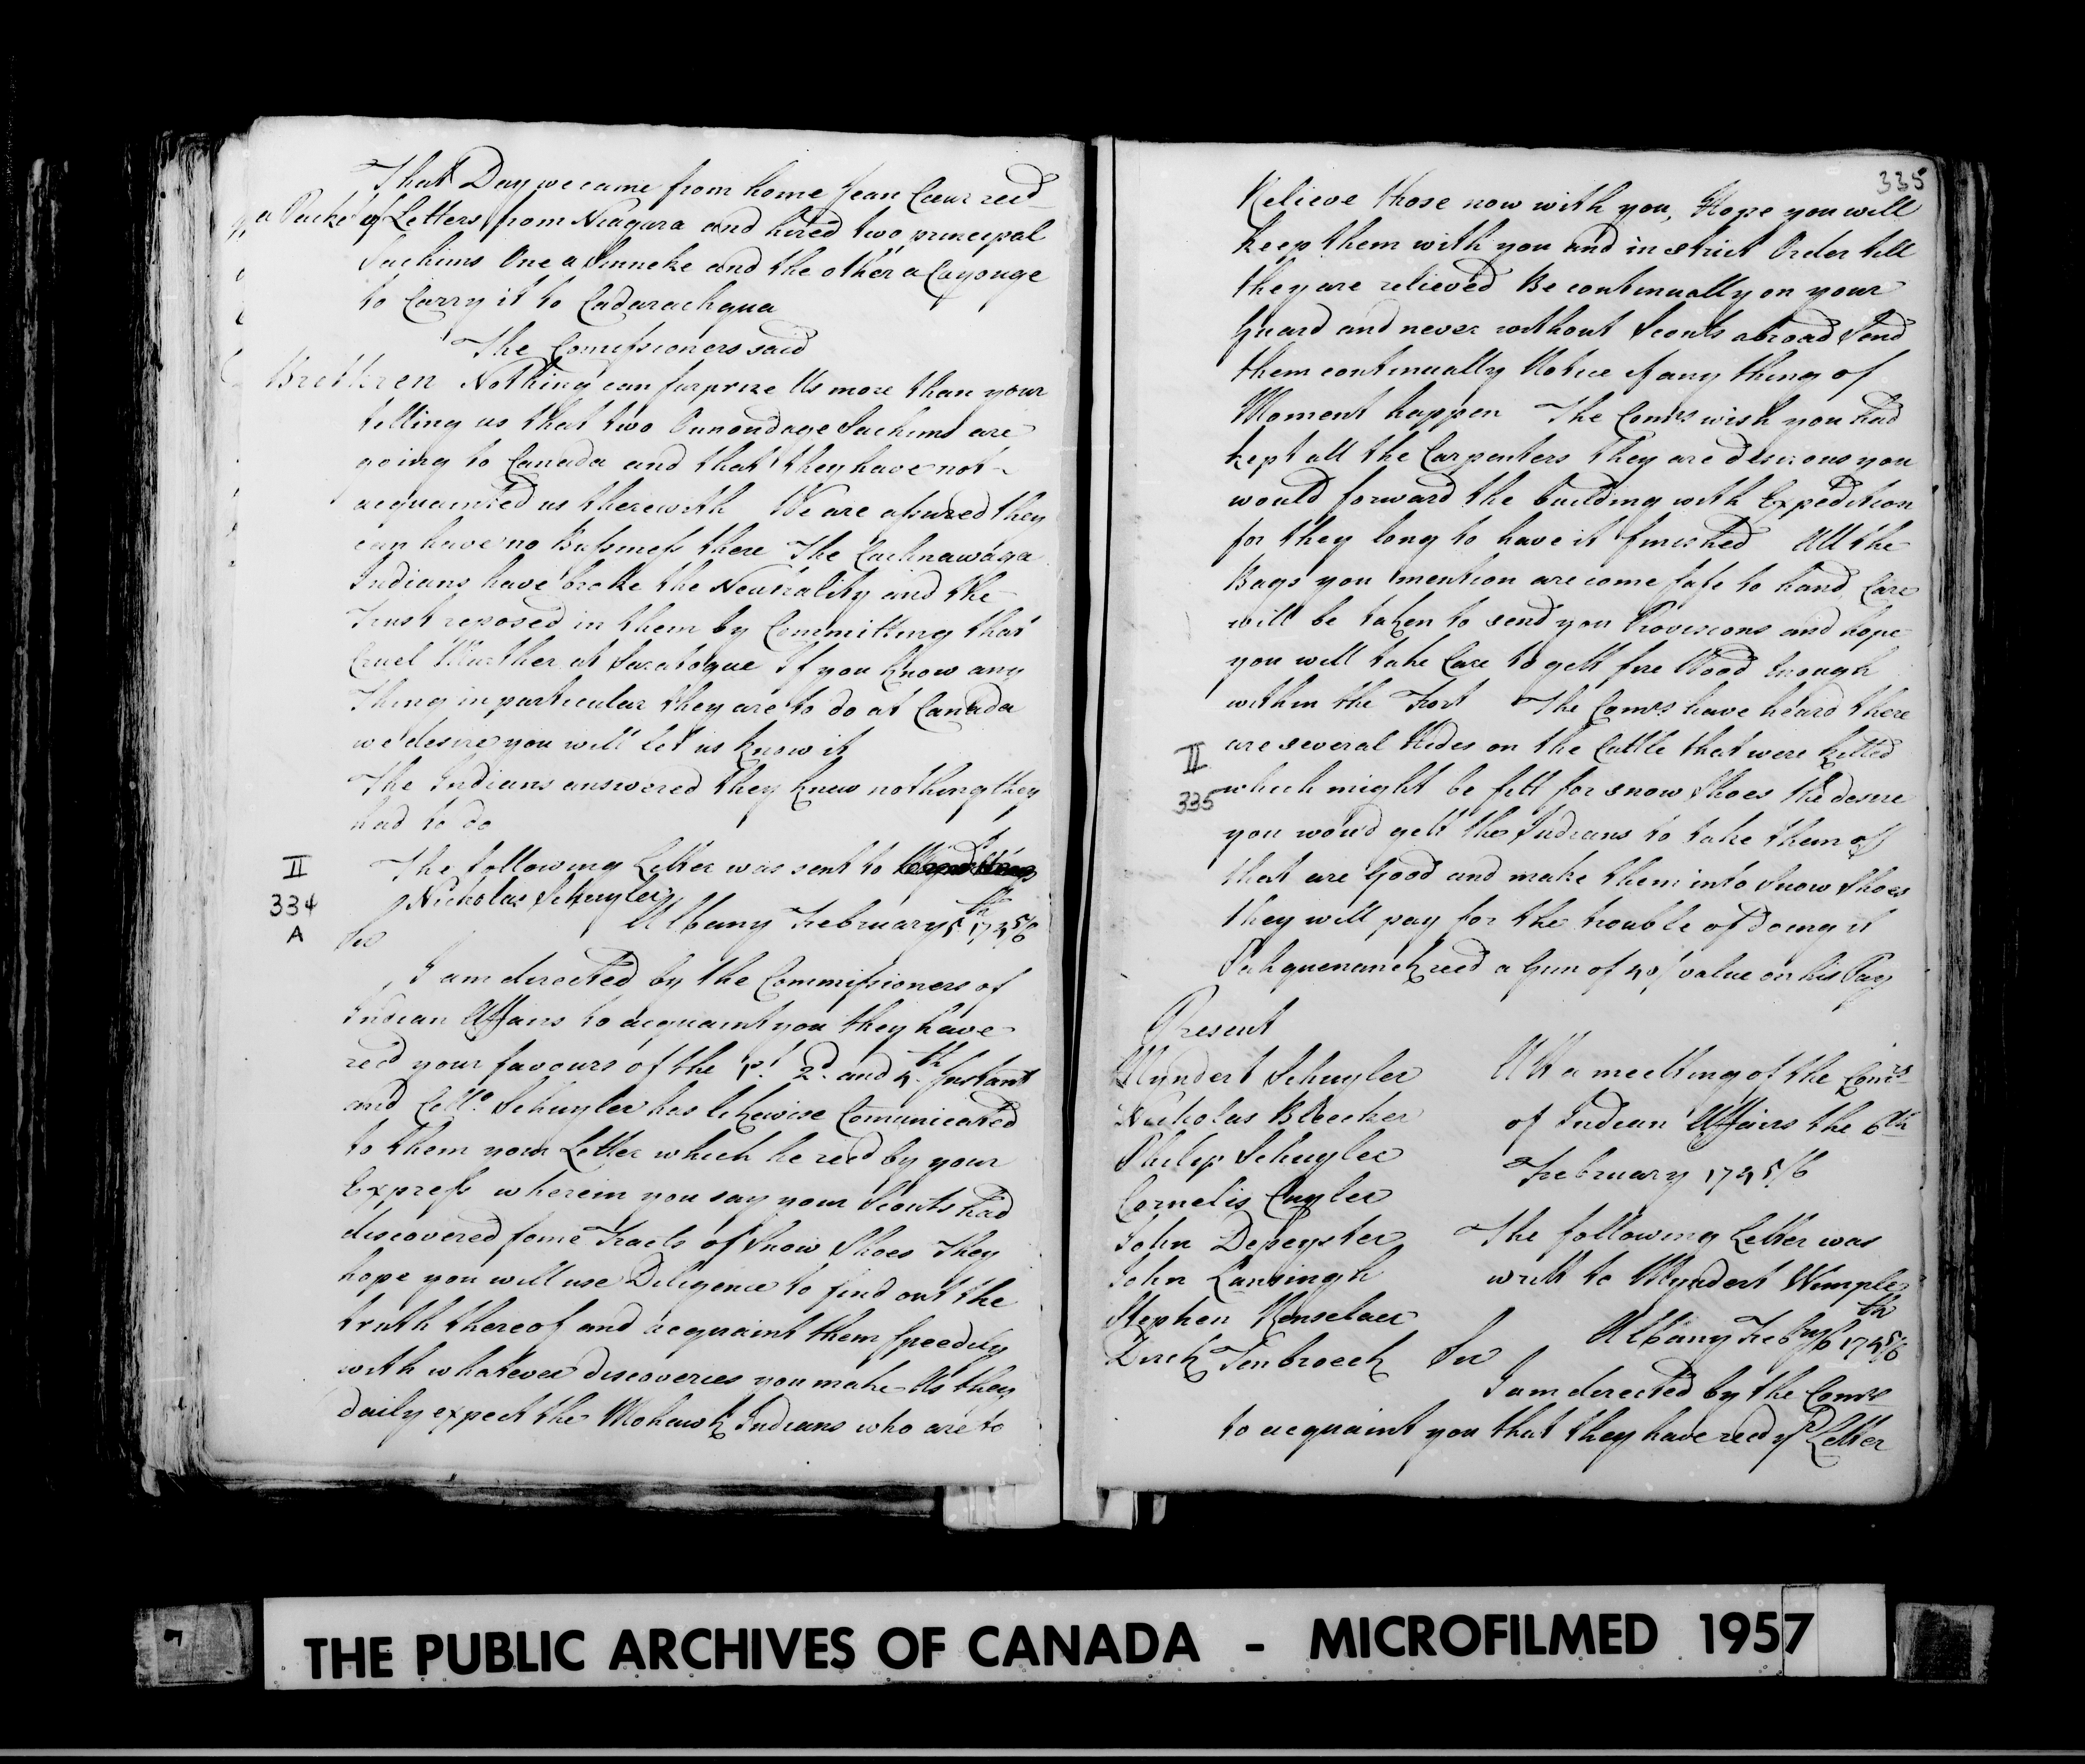 That Day we came from home Jean Cœur recd
a Packet of Letters from Niagara and hired two principal
Sachims One a Sinneke and the other a Cayouge
to Carry it to Cadarachqua
The Comissioners said
Brethren Nothing can surprize Us more than your
telling us that two Onnondage Sachims are
going to Canada and that they have not
acquainted us therewith We are assured they
can have no Bussiness there The Cachnawaga
Indians have broke the Neutrality and the
Trust reposed in them by Committing that
Cruel Murther at Saratogue If you know any
Thing in particular they are to do at Canada
we desire you will let us know it
The Indians answered they knew nothing they
had to do
II
334
A
The following Letter was sent to Lt
Nicholas Schuyler
Albany February 5th 1745/6
Sir
I am directed by the Commissioners of
Indian Affairs to acquaint you they have
recd your favours of the 1st. 2d. and 4th. Instant
and Collo. Schuyler has likewise Comunicated
to them your Letter which he recd by your
Express wherein you say your Scouts had
discovered some Tracts of Snow Shoes They
hope you will use Diligence to find out the
truth thereof and acquaint them speedily
with whatever discoveries you make As they
daily expect the Mohawk Indians who are to
335
Relieve those now with you, Hope you will
keep them with you and in strict Order till
they are relieved Be continually on your
Guard and never without Scouts abroad Send
them continually Notice if any thing of
Moment happen The Comrs wish you had
kept all the Carpenters They are desirous you
would forward the building with Expedition
for they long to have it finished All the
Bags you mention are come safe to hand Care
will be taken to send you Provisions and hope
you will take Care to gett fire Wood Enough
within the Fort The Comrs have heard there
are several Hides on the Cattle that were killed
II
335
which might be fitt for snow Shoes the desire
you woud gett the Indians to take them off
that are Good and make them into Snow Shoes
they will pay for the trouble of doing it
recd a Gun of 40/ value on his Pay
Present
Myndert Schuyler
Nicholas Bleecker
Philip Schuyler
Cornelis Cuyler
John Depeyster
John Lansingh
Stephen Renselaer
Dirck Tenbroeck
Att a meetting of the Comrs
of Indian Affairs the 6th
February 1745/6
The following Letter was
writt to Myndert Wemple
Albany Febry 6th 1745/6
Sir
I am directed by the Comrs
to acquaint you that they have recd yr Letter
THE PUBLIC ARCHIVES OF CANADA - MICROFILMED 1957
7